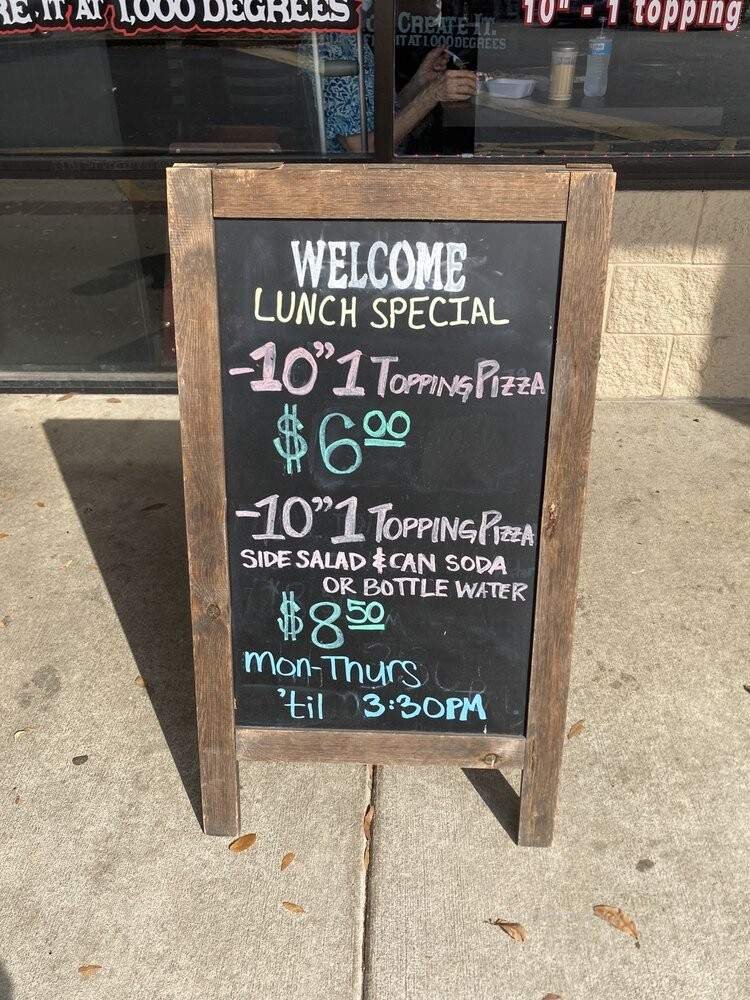 RE IT AT 1,000 DEGREES
CREATE IT.
IT AT 1,000 DEGREES
10" - 1 topping
WELCOME
LUNCH SPECIAL
-10" 1 TOPPING PIZZA
$6.00
-10" 1 TOPPING PIZZA
SIDE SALAD & CAN SODA
OR BOTTLE WATER
$8.50
Mon-Thurs
'til 3:30PM